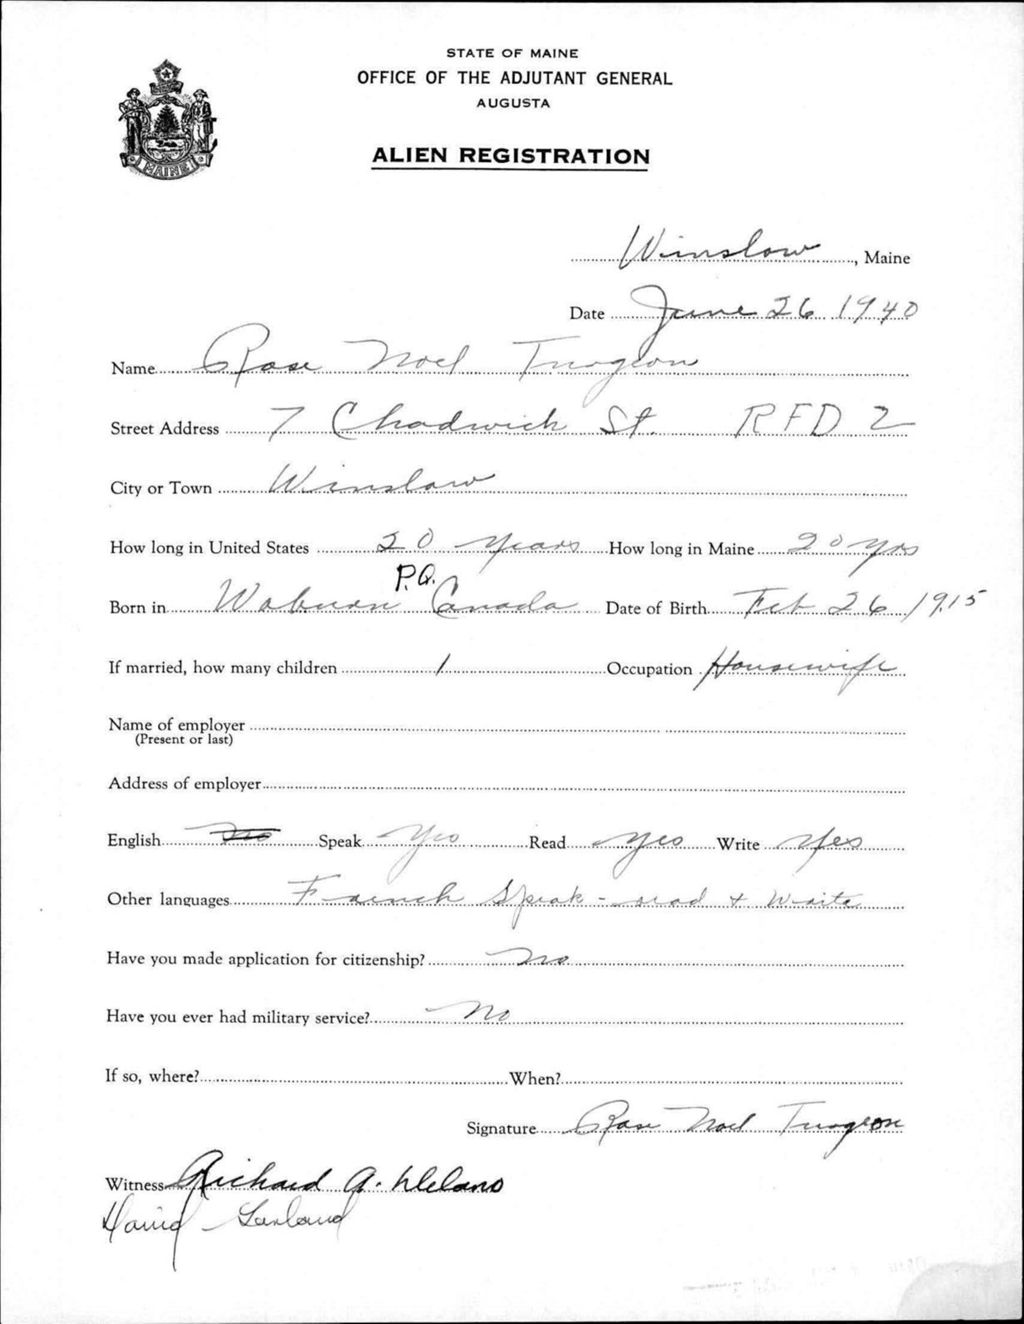 STATE OF MAINE
OFFICE OF THE ADJUTANT GENERAL
AUGUSTA
ALIEN REGISTRATION
MAINE
Winslow, Maine
Date June 26 1940
Name Rose Noel Turgeon
Street Address 7 Chadwick St. RFD 2
City or Town Winslow
How long in United States 20 years How long in Maine 20 yrs
P.Q.
Born in Woburn Canada Date of Birth Feb 26 1915
If married, how many children 1 Occupation Housewife
Name of employer
(Present or last)
Address of employer
English No Speak Yes Read Yes Write Yes
Other languages French Speak - read + Write
Have you made application for citizenship? No
Have you ever had military service? No
If so, where? When?
Signature Rose Noel Turgeon
Witness Richard A. Delano
David Garland